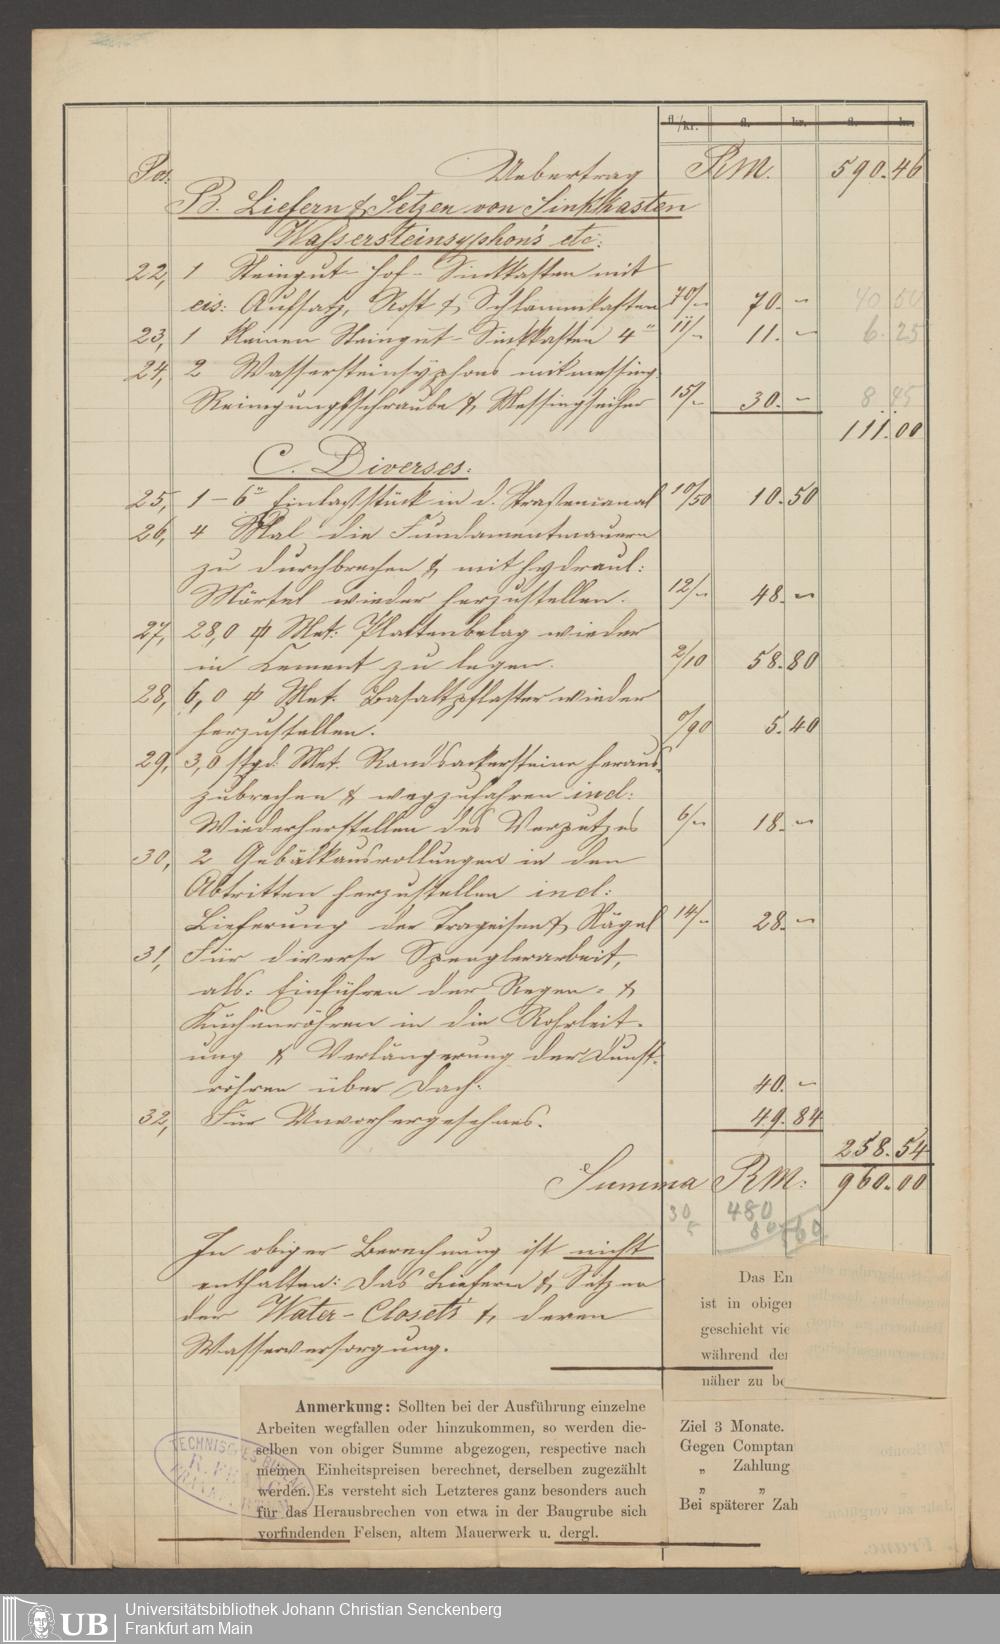 fl/kr. fl. kr. fl. kr.
Pos: Uebertrag RM. 590.46
B. Liefern & Setzen von Sinkkasten
Wassersteinsyphon's etc:
22, 1 Steingut-Hof-Sinkkasten mit
eis: Aufsatz, Rost & Schlammkasten 70/– 70.– 40 50
23, 1 kleinen Steingut-Sinkkasten 4" 11/– 11.– 6.25
24, 2 Wassersteinsyphons mit messing
Reinigungsschraube & Messingseiher 15/– 30.– 8 45
111.00
C. Diverses:
25, 1 – 6" Einlaßstück in d. Straßencanal 10/50 10.50
26, 4 Mal die Fundamentmauern
zu durchbrechen & mit hydraul:
Mörtel wieder herzustellen. 12/– 48.–
27, 28,0 Met: Plattenbelag wieder
in Cement zu legen. 2/10 58.80
28, 6,0 Met. Basaltpflaster wieder
herzustellen. 0/90 5.40
29, 3,0 stgd. Met. Randsackersteine heraus-
zubrechen & wegzufahren incl:
Wiederherstellen des Verputzes 6/– 18.–
30, 2 Gebälkausrollungen in den
Abtritten herzustellen incl:
Lieferung der Trageisen & Nägel 14/– 28.–
31, Für diverse Spenglerarbeit,
als: Einführen der Regen- &
Küchenröhren in die Rohrleit-
ung & Verlängerung der Dunst-
röhren über Dach. 40.–
32, Für Unvorhergesehnes. 49.84
258.54
Summa RM: 960.00
30 480
In obiger Berechnung ist nicht
enthalten: Das Liefern & Setzen
der Water-Closets & deren
Wasserversorgung.
Das En
ist in obiger
geschieht vie
während der
näher zu be
Anmerkung: Sollten bei der Ausführung einzelne
Arbeiten wegfallen oder hinzukommen, so werden die-
selben von obiger Summe abgezogen, respective nach
meinen Einheitspreisen berechnet, derselben zugezählt
werden. Es versteht sich Letzteres ganz besonders auch
für das Herausbrechen von etwa in der Baugrube sich
vorfindenden Felsen, altem Mauerwerk u. dergl.
Ziel 3 Monate.
Gegen Comptan
„ Zahlung
„ „
Bei späterer Zah
TECHNISCHES BUREAU
UB Universitätsbibliothek Johann Christian Senckenberg
Frankfurt am Main